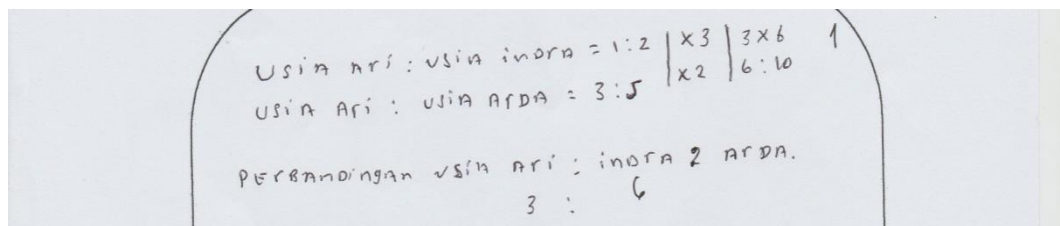 Usia Ari : usia indra = 1 : 2 | x 3 | 3 x 6 1
Usia Ari : usia Arda = 3 : 5 | x 2 | 6 : 10
Perbandingan usia Ari : indra 2 Arda.
3 : 6